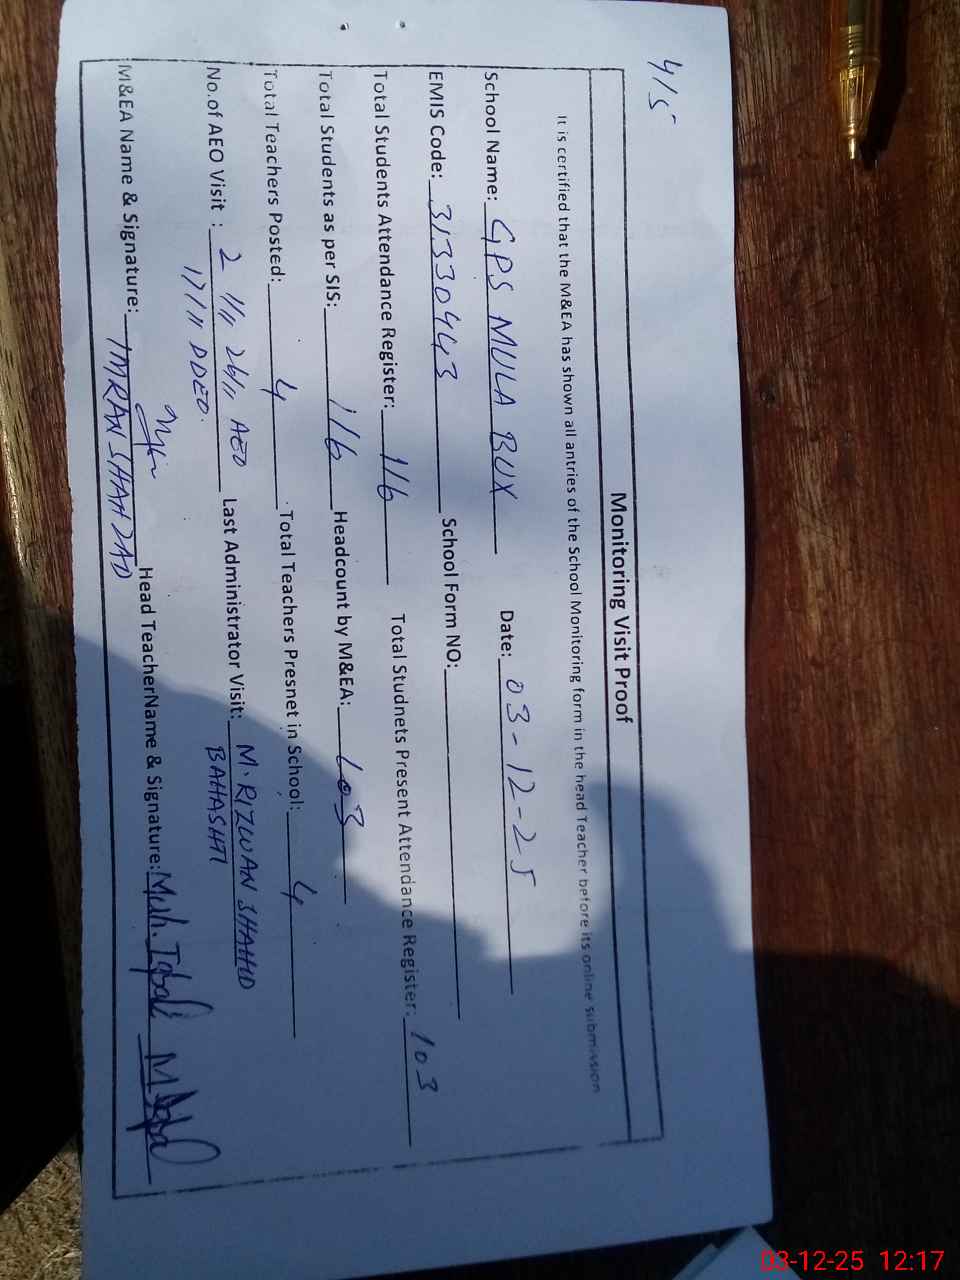 4/5
Monitoring Visit Proof
It is certified that the M&EA has shown all antries of the School Monitoring form in the head Teacher before its online submission
School Name: GPS MULA BUX Date: 03-12-25
EMIS Code: 31330443 School Form NO:
Total Students Attendance Register: 116 Total Studnets Present Attendance Register: 103
Total Students as per SIS: 116 Headcount by M&EA: 103
Total Teachers Posted: 4 Total Teachers Presnet in School: 4
No.of AEO Visit : 2 1/11 26/11 AEO Last Administrator Visit: M.RIZWAN SHAHID
17/11 DDEO. BAHASHTI
M&EA Name & Signature: IMRAN SHAHZAD Head TeacherName & Signature: Muh. Iqbal M Iqbal
03-12-25 12:17